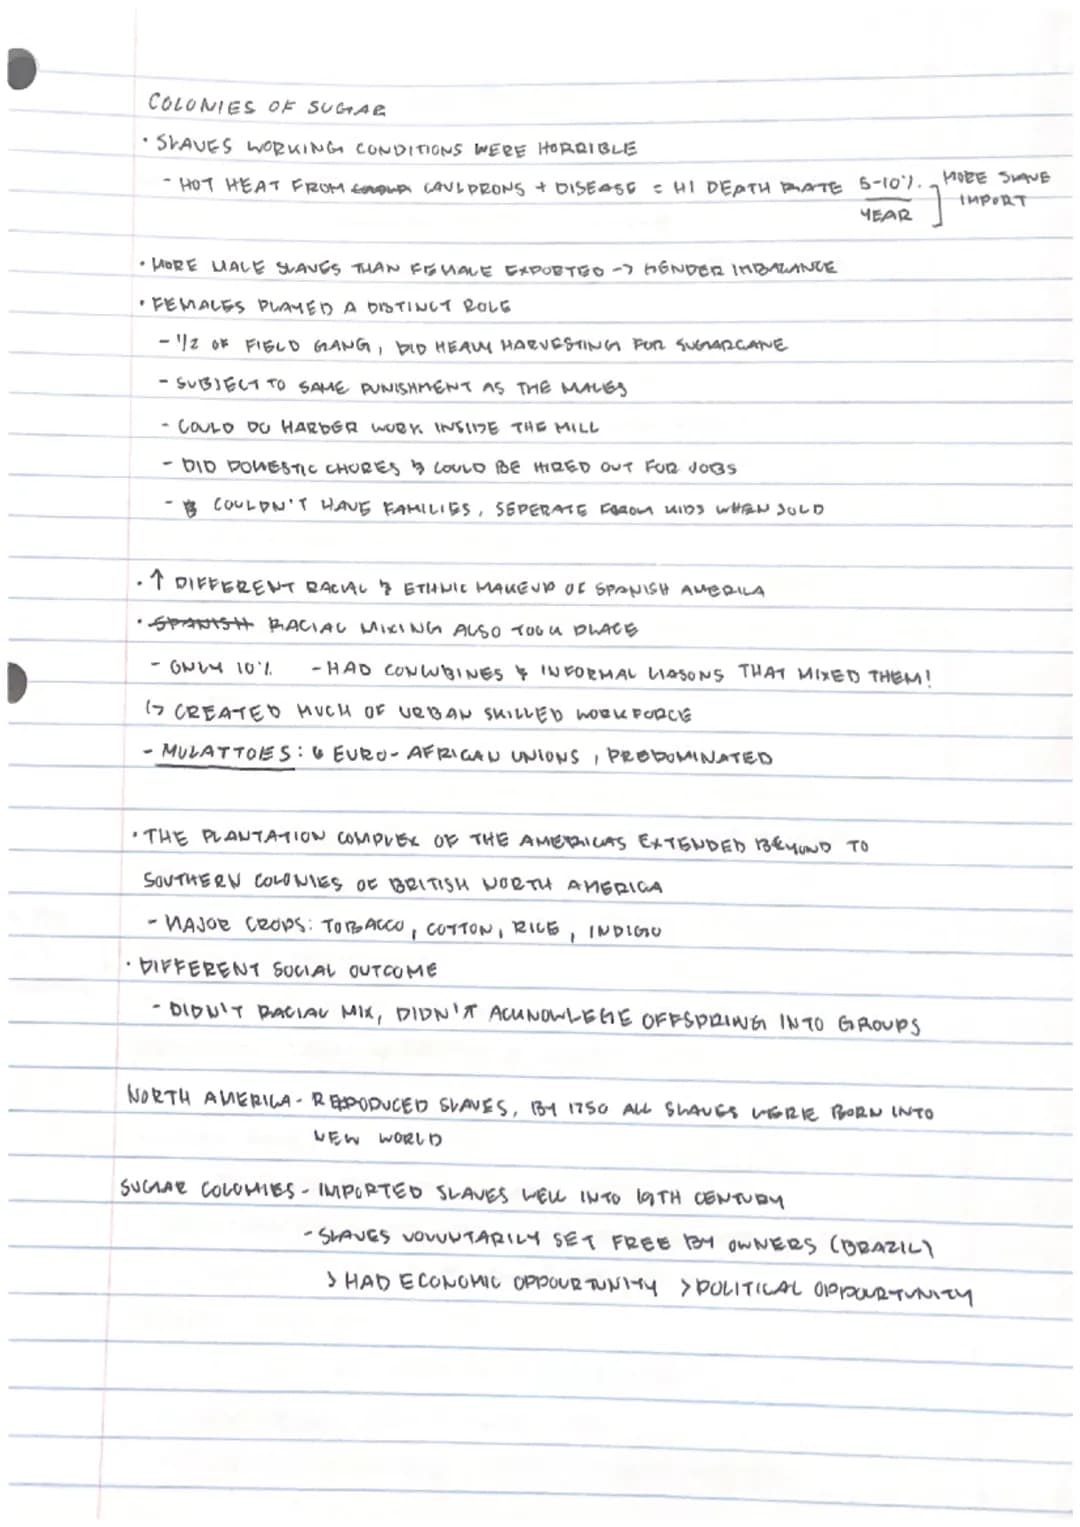 COLONIES OF SUGAR
• SLAVES WORKING CONDITIONS WERE HORRIBLE
- HOT HEAT FROM CAULDRONS + DISEASE = HI DEATH RATE 5-10% / YEAR ] MORE SLAVE IMPORT
• MORE MALE SLAVES THAN FEMALE EXPORTED -> GENDER IMBALANCE
• FEMALES PLAYED A DISTINCT ROLE
- 1/2 OF FIELD GANG, DID HEAVY HARVESTING FOR SUGARCANE
- SUBJECT TO SAME PUNISHMENT AS THE MALES
- COULD DO HARDER WORK INSIDE THE MILL
- DID DOMESTIC CHORES & COULD BE HIRED OUT FOR JOBS
- COULDN'T HAVE FAMILIES, SEPERATE FOROM KIDS WHEN SOLD
• ↑ DIFFERENT RACIAL & ETHNIC MAKEUP OF SPANISH AMERICA
• SPANISH RACIAL MIXING ALSO TOOK PLACE
- ONLY 10% - HAD CONCUBINES & INFORMAL LIASONS THAT MIXED THEM!
↳ CREATED MUCH OF URBAN SKILLED WORKFORCE
- MULATTOES: EURO-AFRICAN UNIONS, PREDOMINATED
• THE PLANTATION COMPLEX OF THE AMERICAS EXTENDED BEYOND TO
SOUTHERN COLONIES OF BRITISH NORTH AMERICA
- MAJOR CROPS: TOBACCO, COTTON, RICE, INDIGO
• DIFFERENT SOCIAL OUTCOME
- DIDN'T RACIAL MIX, DIDN'T ACKNOWLEGE OFFSPRING INTO GROUPS
NORTH AMERICA - REPRODUCED SLAVES, BY 1750 ALL SLAVES WERE BORN INTO
NEW WORLD
SUGAR COLONIES - IMPORTED SLAVES WELL INTO 19TH CENTURY
- SLAVES VOLUNTARILY SET FREE BY OWNERS (BRAZIL)
> HAD ECONOMIC OPPOURTUNITY > POLITICAL OPPOURTUNITY